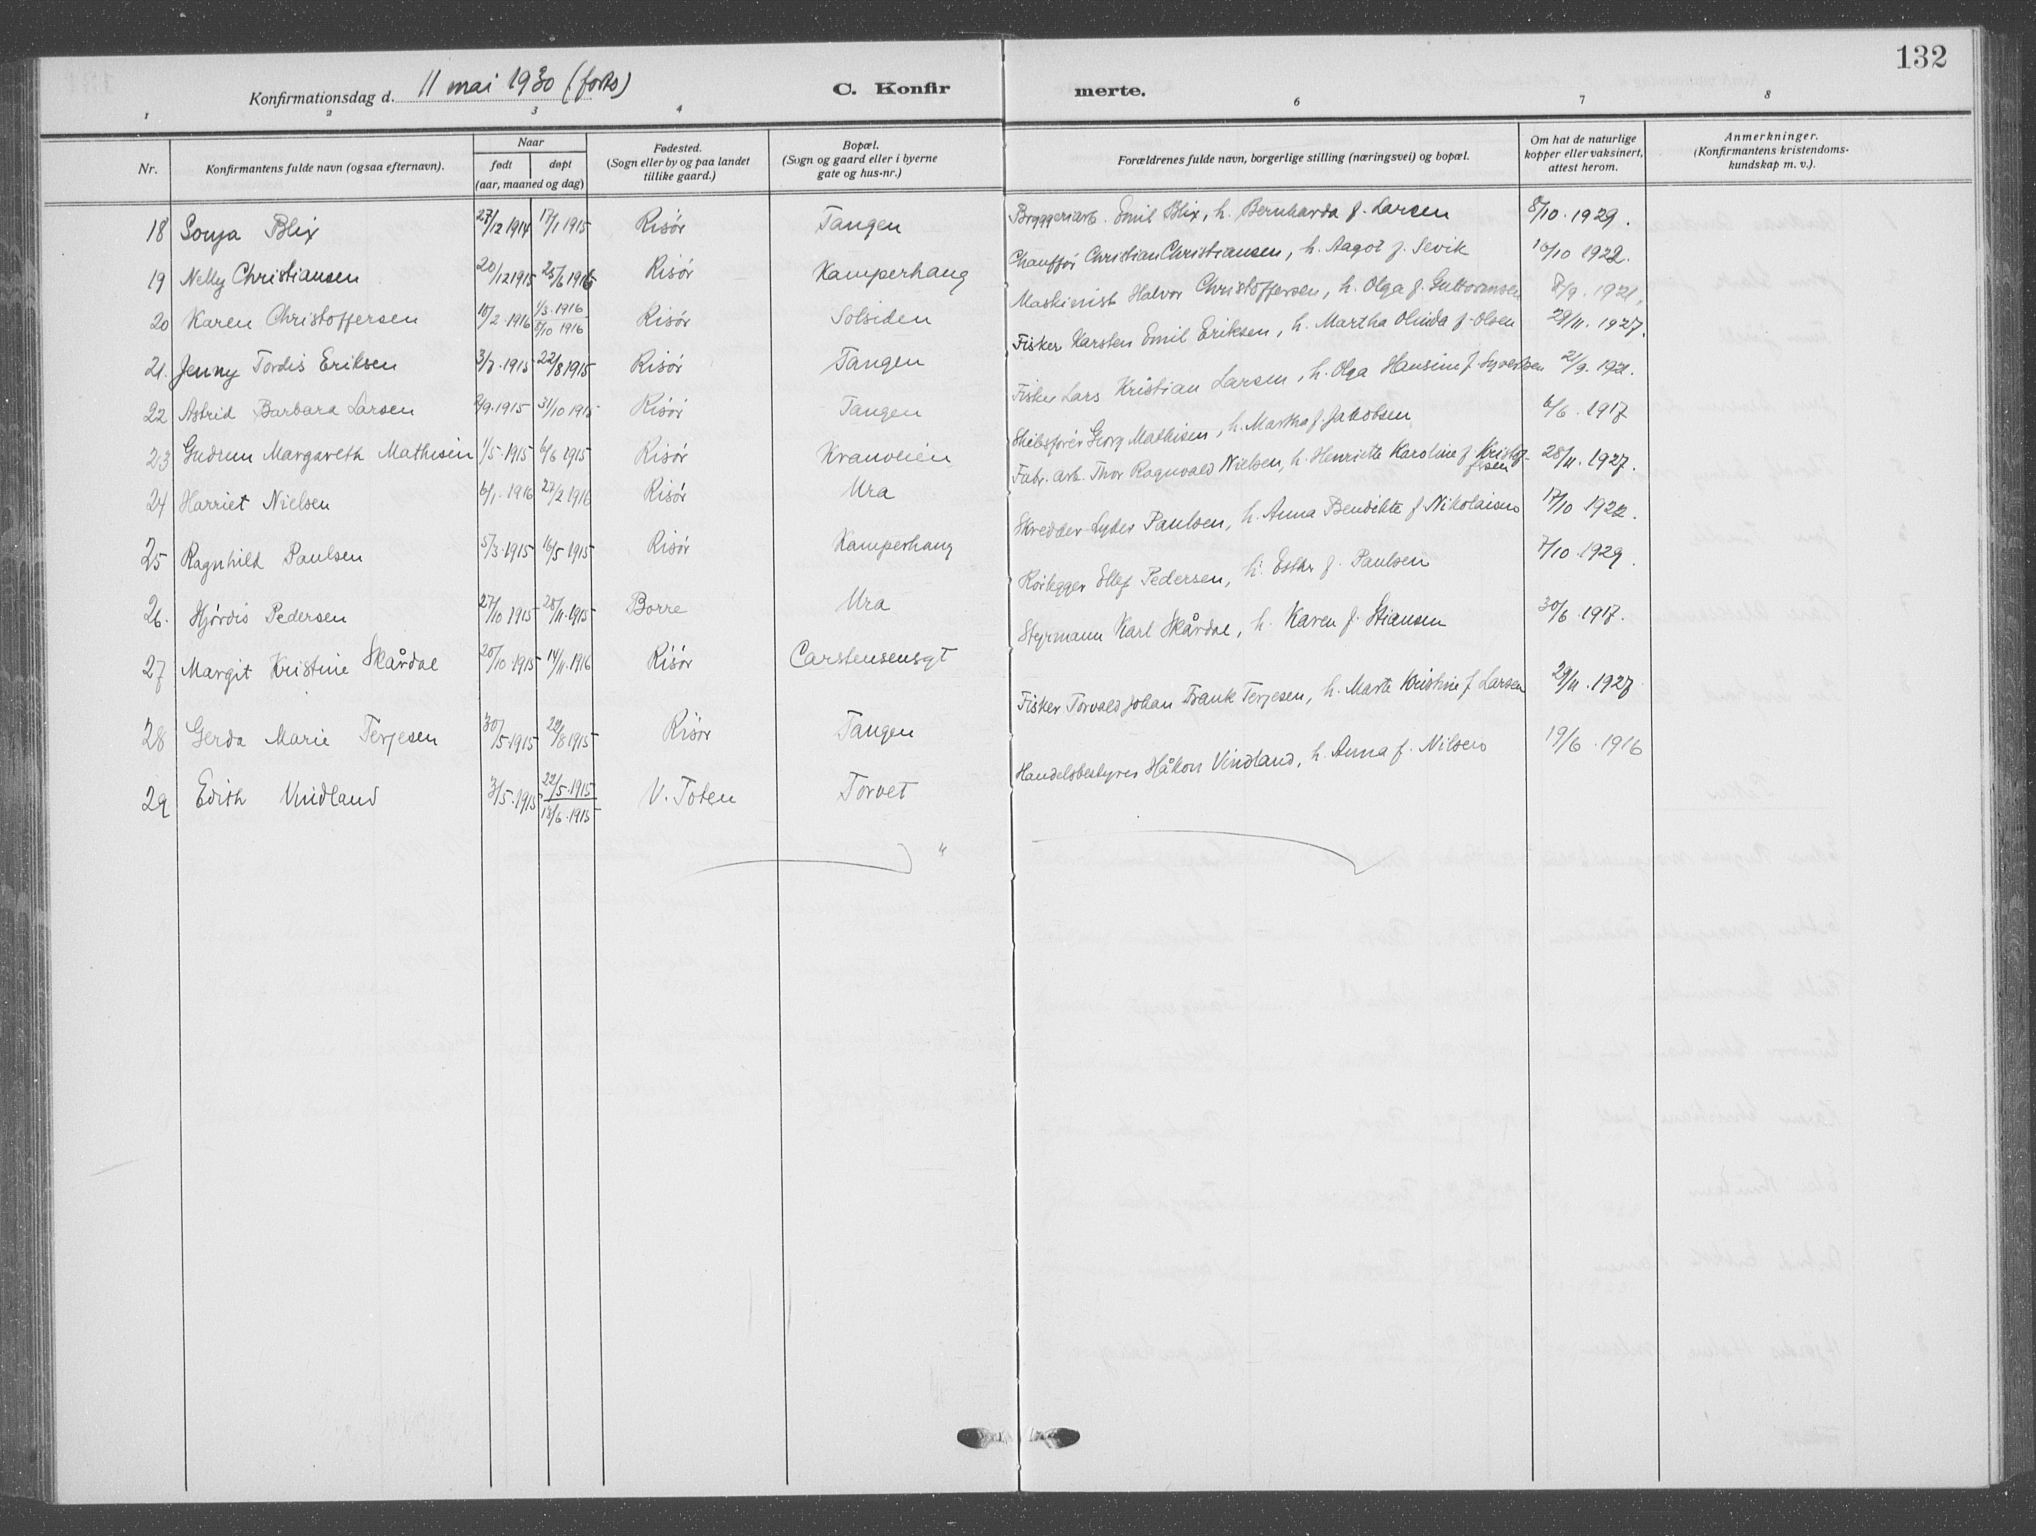 132
Konfirmationsdag d. 11 mai 1930 (forts) C. Konfir merte.
1 2 3 4 6 7 8
Nr. Konfirmantens fulde navn (ogsaa efternavn). Naar født døpt (aar, maaned og dag) Fødested. (Sogn eller by og paa landet tillike gaard.) Bopæl. (Sogn og gaard eller i byerne gate og hus-nr.) Forældrenes fulde navn, borgerlige stilling (næringsvei) og bopæl. Om hat de naturlige kopper eller vaksinert, attest herom. Anmerkninger. (Konfirmantens kristendoms- kundskap m. v.).
18 Sonja Blix 27/12 1914 17/1 1915 Risør Tangen Bryggeriarb. Emil Blix, h. Bernharda f. Larsen 8/10 . 1929.
19 Nelly Christiansen 20/12 1915 25/6 1916 Risør Kamperhaug Chauffør Christian Christiansen, h. Aagot f. Sevik 10/10 1922.
20 Karen Christoffersen 10/2 . 1916 1/3 . 1916 5/10 1916 Risør Solsiden Maskinist Halvor Christoffersen, h. Olga f. Guttormsen 8/9 . 1921,
21. Jenny Tordis Eriksen 3/7 . 1915 22/8 1915 Risør Tangen Fisker Karsten Emil Eriksen, h. Martha Olinda f. Olsen 28/11 . 1927.
22 Astrid Barbara Larsen 2/9 . 1915 31/10 1915 Risør Tangen Fisker Lars Kristian Larsen, h. Olga Hansine f. 21/9 . 1921.
23 Gudrun Margareth Mathisen 1/5 . 1915 6/6 1915 Risør Kranveien Skibsfører Georg Mathisen, h. Martha f. Jakobsen 6/6 . 1917
24 Harriet Nielsen 6/1 . 1916 27/2 1916 Risør Ura Fabr. arb. Thor Ragnvald Nielsen, h. Henriette Karoline f. Kristoffersen 28/11 . 1927.
25 Ragnhild Paulsen 5/3 . 1915 16/5 . 1915 Risør Kamperhaug Skredder Lyder Paulsen, h. Anna Bendikte f. Nikolaisen 17/10 1922.
26. Hjördis Pedersen 27/10 1915 28/11 . 1915 Borre Ura Rørlegger Ellef Pedersen, h. Esther f. Paulsen 7/10 . 1929.
27 Margit Kristine Skårdal 20/10 . 1915 14/11 . 1916 Risør Carstensensgt Styrmann Karl Skårdal, h. Karen f. Stiansen 30/6 . 1917.
28 Gerda Marie Terjesen 30/5 . 1915 22/8 1915 Risør Tangen Fisker Torvald Johan Frank Terjesen, h. Marte Kristine f. Larsen 29/11 . 1927
29 Edith Vindland 3/5 . 1915 22/5 . 1915 13/6 . 1915 V. Toten Torvet Handelsbestyrer Håkon Vindland, h. Anna f. Nilsen 19/6 . 1916